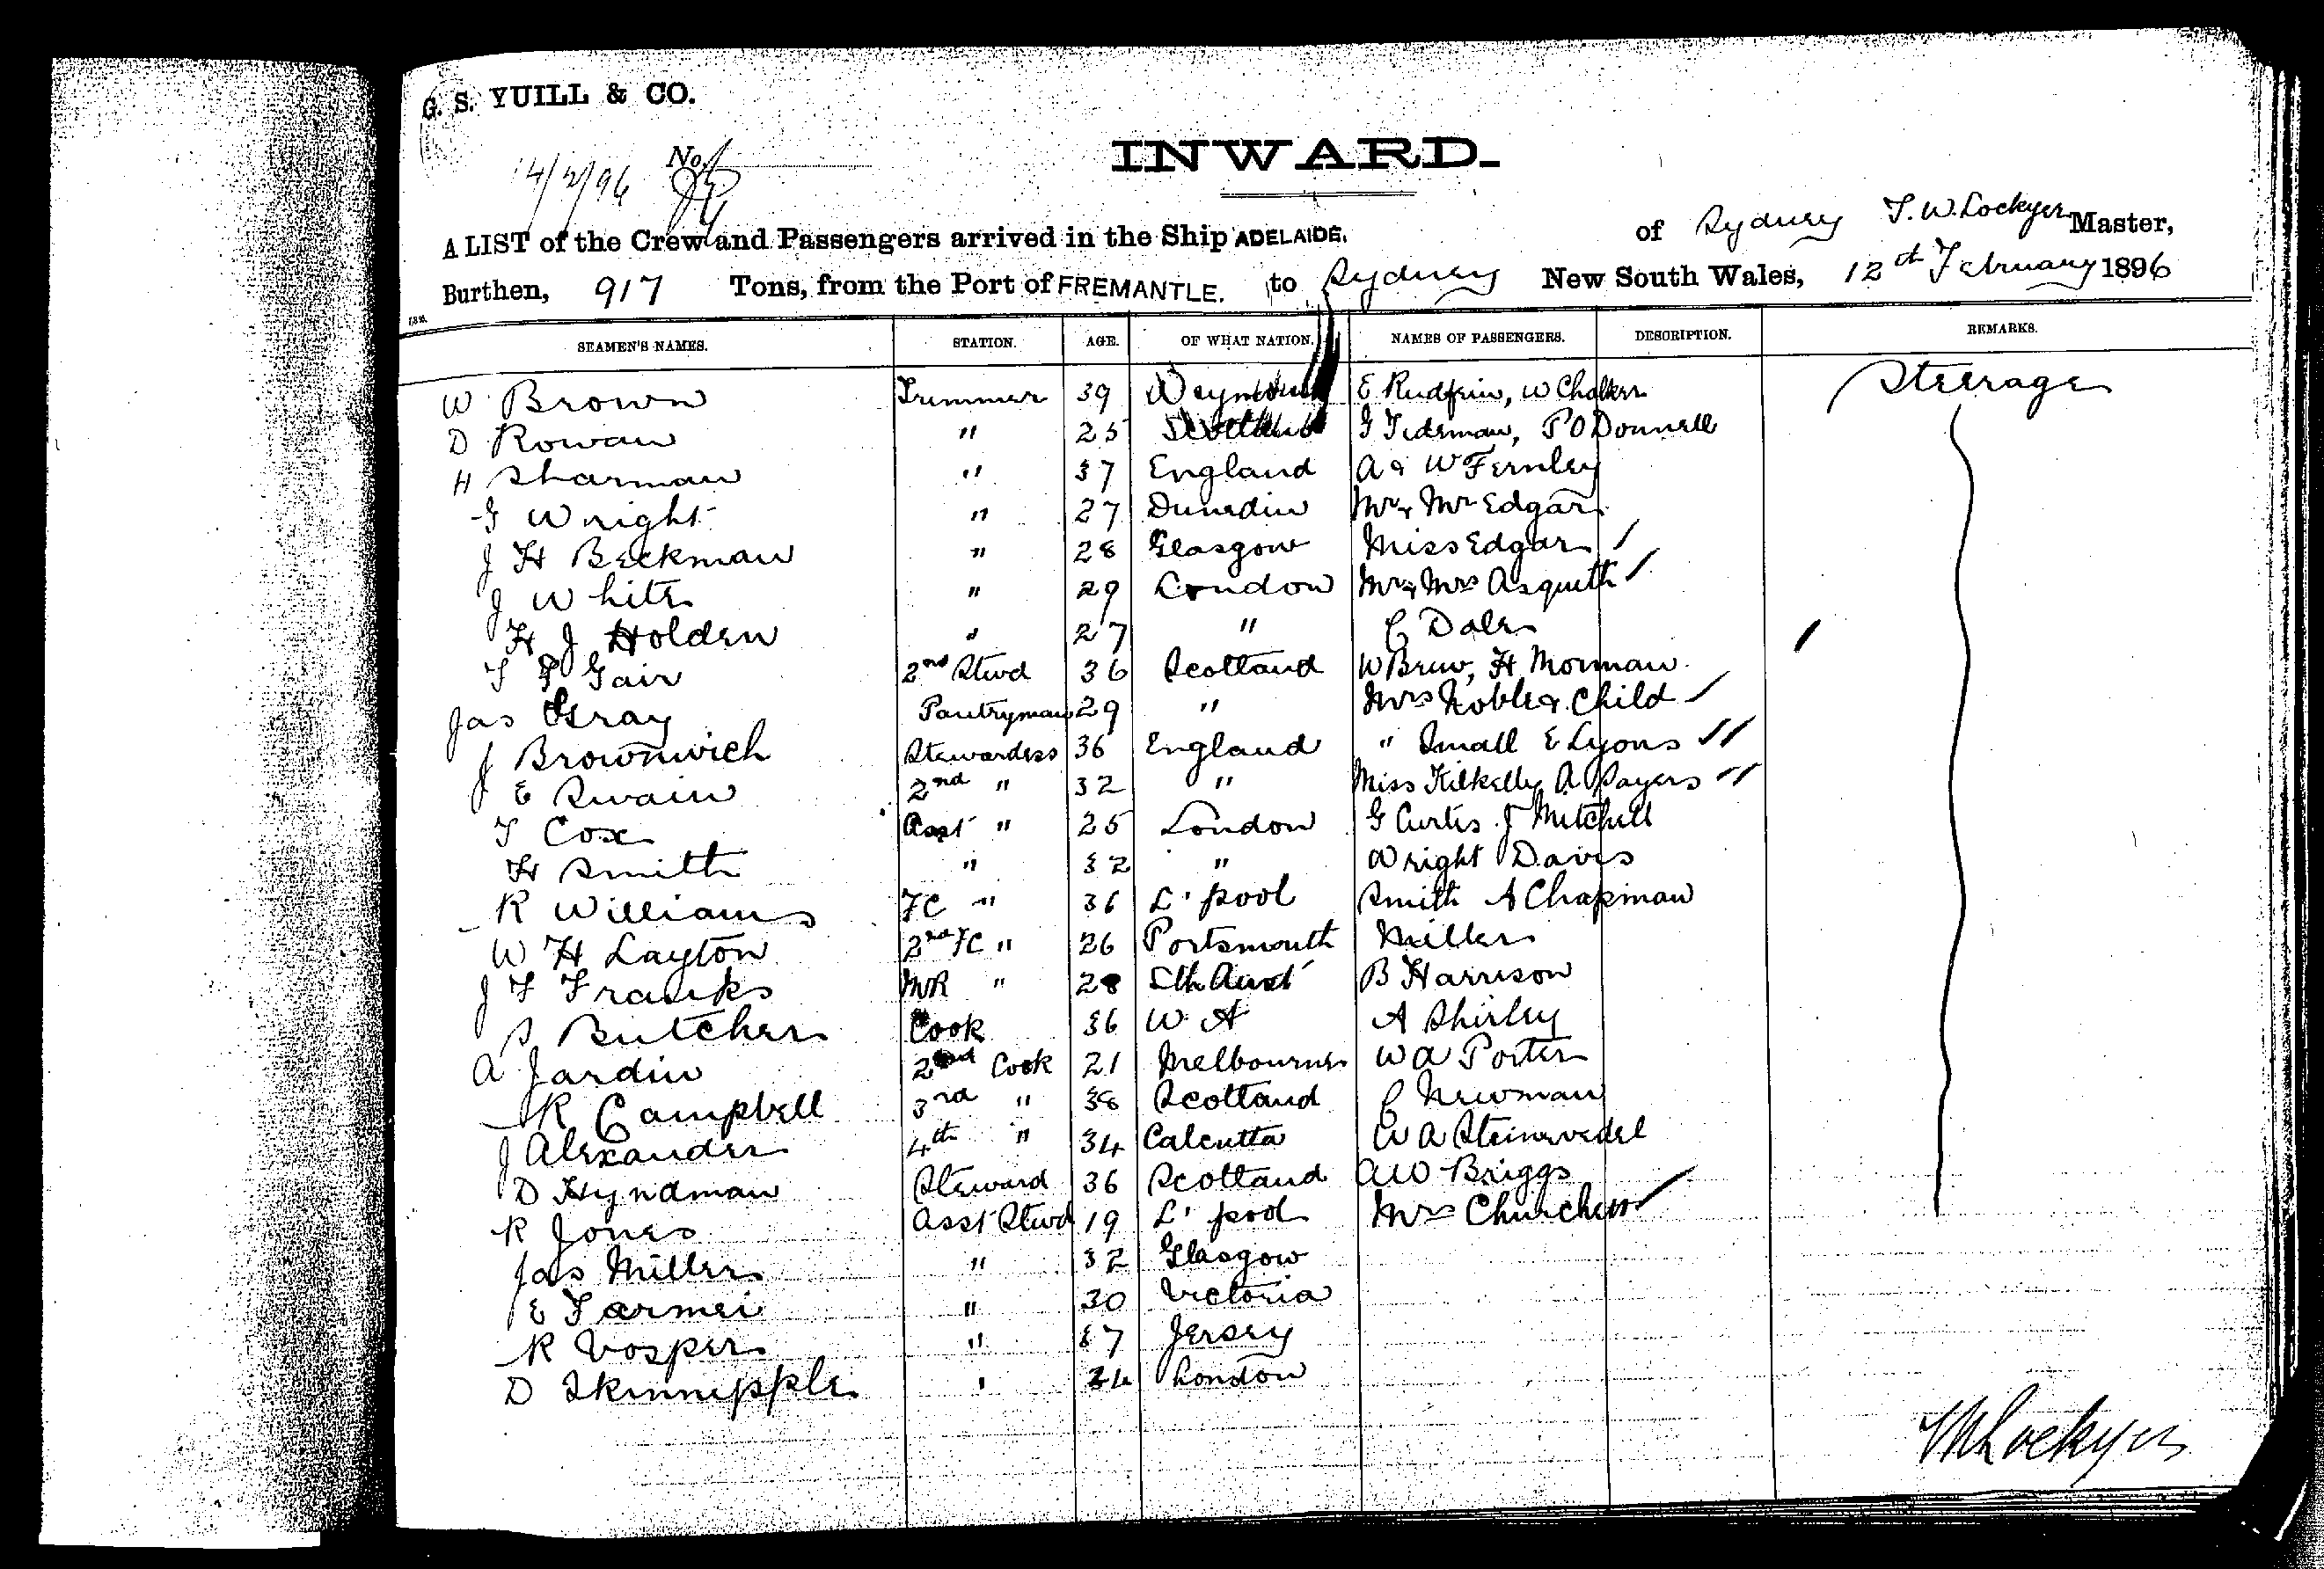 G. S. YUILL & CO.
14/2/96 No.
INWARD.
of Sydney T. W. Lockyer Master,
A LIST of the Crew and Passengers arrived in the Ship ADELAIDE.
Burthen, 917 Tons, from the Port of FREMANTLE. to Sydney New South Wales, 12th February 1896
SEAMEN'S NAMES. STATION. AGE. OF WHAT NATION. NAMES OF PASSENGERS. DESCRIPTION. REMARKS.
W Brown Trimmer 39 Weymouth E , W Chalker Steerage
D Rowan " 25 Scotland G Tideman, P O Donnell
H Sharman " 37 England A & W Fernley
G Wright " 27 Dunedin Mr & Mrs Edgar
J H Beckman " 28 Glasgow Miss Edgar
J White " 29 London Mr & Mrs Asquith
H J Holden " 27 " C Dale
T F Gair 2nd Stwd 36 Scotland W , H Morman
Jas Gray Pantryman 29 " Mrs Noble & Child
J Brownwich Stewardess 36 England " Small E Lyons
E Swain 2nd " 32 " Miss Kilkelly A Sayers
T Cox Asst " 25 London G Curtis J Mitchell
H Smith " 32 " Wright Davis
R Williams FC " 36 L'pool Smith A Chapman
W H Layton 2nd FC " 26 Portsmouth Miller
J F Franks MR " 28 Sth Aust B Harrison
S Butcher Cook 36 W A A Shirley
A Jardin 2nd Cook 21 Melbourne W A Porter
R Campbell 3rd " 38 Scotland C Newman
J Alexander 4th " 34 Calcutta W A Steinwedel
D Hyndman Steward 36 Scotland A W Briggs
R Jones Asst Stwd 19 L'pool Mrs Churcher
Jas Miller " 32 Glasgow
E Farmer " 30 Victoria
R Vosper " 37 Jersey
D Skinnepple " 24 London
T W Lockyer